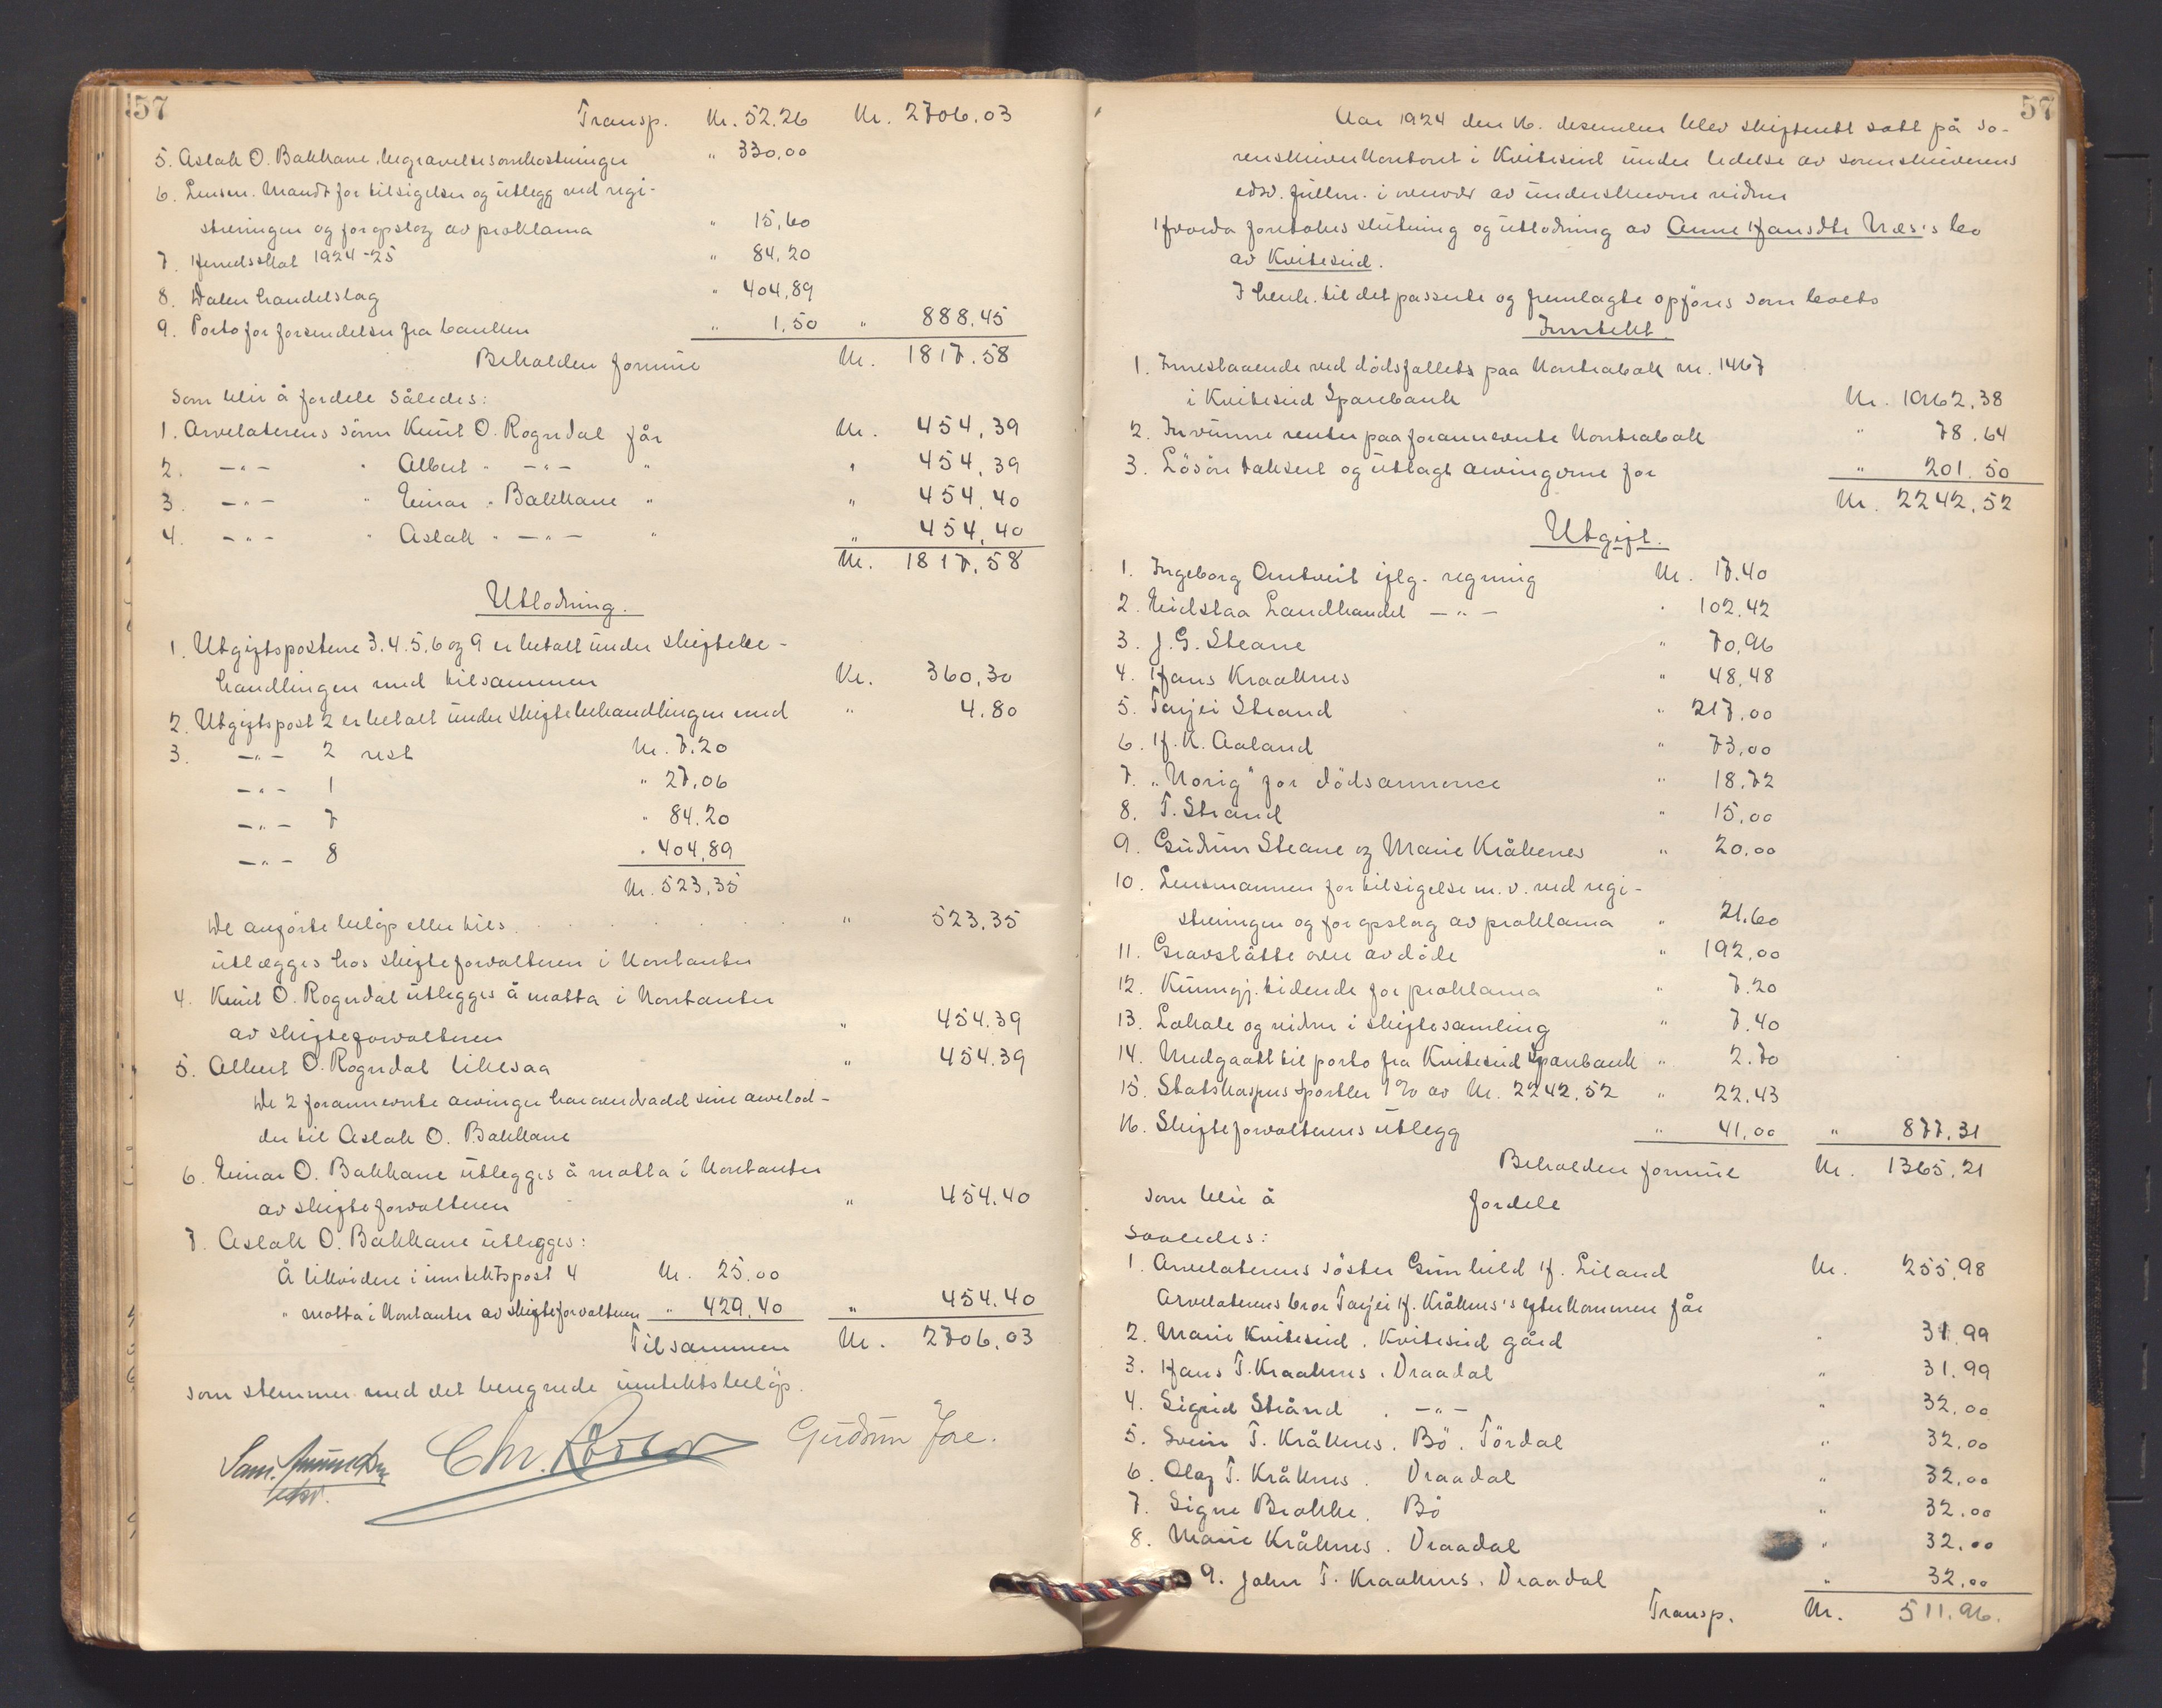 157
Transp. Kr. 52.26 Kr. 2706.03
5. Aslak O. Bakkane, begravelsesomkostninger " 330,00
6. Lensm. Mandt for tilsigelser og utlegg ved regi-
streringen og for opslag av proklama " 15,60
7. Herredsskat 1924-25 " 84,20
8. Dalen Handelslag " 404,89
9. Porto for forsendelser fra banken " 1,50 " 888.45
Beholden formue Kr. 1817.58
som blir å fordele således:
1. Arvelaterens sønn Knut O. Rogndal får Kr. 454,39
2. —"— " Albert " —"— " " 454,39
3. —"— " Einar " Bakkane " " 454,40
4. —"— " Aslak " —"— " " 454,40
Kr. 1817,58
Utlodning.
1. Utgiftspostene 3.4.5.6 og 9 er betalt under skiftebe-
handlingen med tilsammen Kr. 360,30
2. Utgiftspost 2 er betalt under skiftebehandlingen med " 4.80
3. —"— 2 rest Kr. 7.20
—"— 1 " 27,06
—"— 7 " 84.20
—"— 8 " 404,89
Kr. 523,35
De anførte beløp eller tils. " 523.35
utlægges hos skifteforvalteren i kontanter
4. Knut O. Rogndal utlegges å motta i kontanter
av skifteforvalteren " 454.39
5. Albert O. Rogndal likesaa " 454.39
De 2 forannevnte arvinger har overdradd sine arvelod-
der til Aslak O. Bakkane
6. Einar O. Bakkane utlegges å motta i kontanter
av skifteforvalteren " 454.40
7. Aslak O. Bakkane utlegges:
Å likvidere i inntektspost 4 Kr. 25.00
" motta i kontanter av skifteforvalteren " 429.40 " 454.40
Tilsammen Kr. 2706.03
som stemmer med det beregnede inntektsbeløp.
Chr. Gudrun Jore.
57
Aar 1924 den 16. desember blev skifterett satt på so-
renskriverkontoret i Kviteseid under ledelse av sorenskriverens
edsv. fullm. i overvær av underskrevne vidner
Hvorda foretokes slutning og utlodning av Anne Hansdtr Næs's bo
av Kviteseid.
I henh. til det passerte og fremlagte opføres som boets
Inntekt.
1. Innestaaende ved dødsfallets paa kontrabok nr. 1467
i Kviteseid Sparebank Kr. 1962,38
2. Invunne renter paa forannevnte kontrabok " 78.64
3. Løsøre taksert og utlagt arvingerne for " 201.50
Kr. 2242,52
Utgift.
1. Ingeborg Omtveit iflg. regning Kr. 17.40
2. Eidstaa Landhandel —"— " 102.42
3. J. G. Steane " 70,96
4. Hans Kraaknes " 48,48
5. Tarjei Strand " 217,00
6. H. K. Aaland " 73,00
7. "Norig" for dødsannonce " 18.72
8. T. Strand " 15,00
9. Gudrun Steane og Marie Kråkenes " 20.00
10. Lensmannen for tilsigelse m. v. ved regi-
streringen og for opslag av proklama " 21.60
11. Gravstøtte over avdøde " 192,00
12. Kunngj. tidende for proklama " 7.20
13. Lokale og vidner i skiftesamling " 7.40
14. Medgaatt til porto fra Kviteseid Sparebank " 2.70
15. Statskassens sportler 1% av Kr. 2242.52 " 22.43
16. Skifteforvalterens utlegg " 41,00 " 877.31
Beholden formue Kr. 1365,21
som blir å fordele
saaledes:
1. Arvelaterens søster Gunhild H. Liland Kr. 255,98
Arvelaterens bror Tarjei H. Kråknes's efterkommer får
2. Marie Kviteseid. Kviteseid gård " 31.99
3. Hans T. Kraaknes. Vraadal " 31.99
4. Sigrid Strånd. —"— " 32.00
5. Svein T. Kråknes. Bø. Tørdal " 32.00
6. Olav T. Kråknes. Vraadal " 32.00
7. Signe Brokke. Bø " 32.00
8. Marie Kråknes. Vraadal " 32.00
9. John T. Kraaknes. Vraadal " 32.00
Transp. Kr. 511.96.